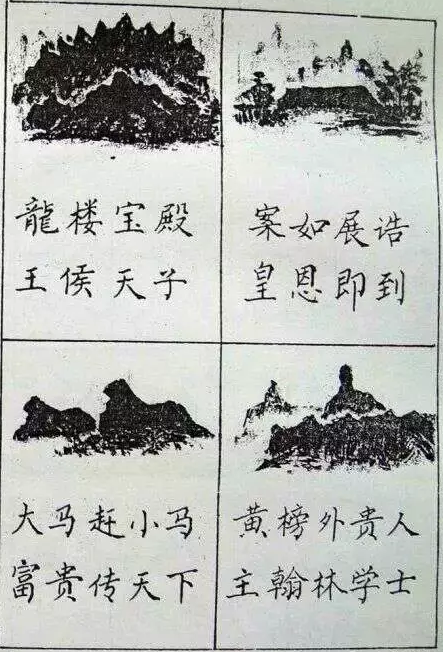 龍楼宝殿
王侯天子
案如展诰
皇恩即到
大马赶小马
富贵传天下
黄榜外贵人
主翰林学士